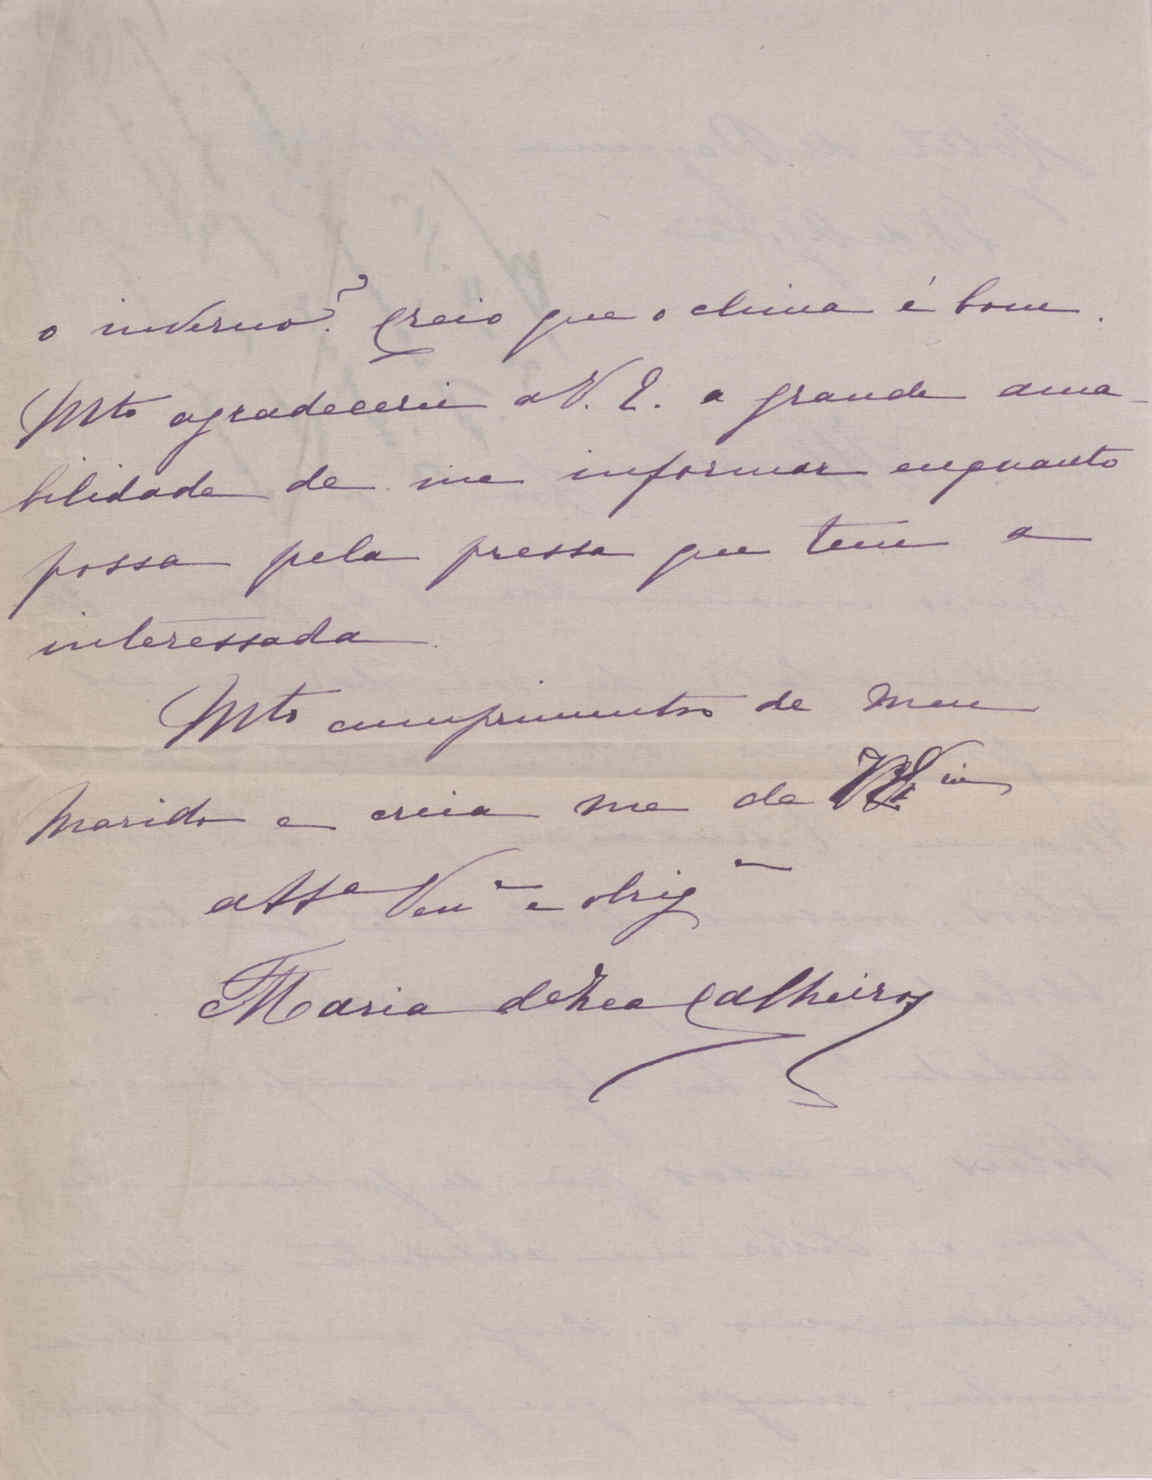 o inverno? Creio que o clima é bom.
Mto agradecerei a V. E. a grande ama-
bilidade de me informar enquanto
possa pela pressa que tem a
interessada.
Mto cumprimentos de meu
marido e creia me de V.
attª Venª e obrigª
Maria Calheiros